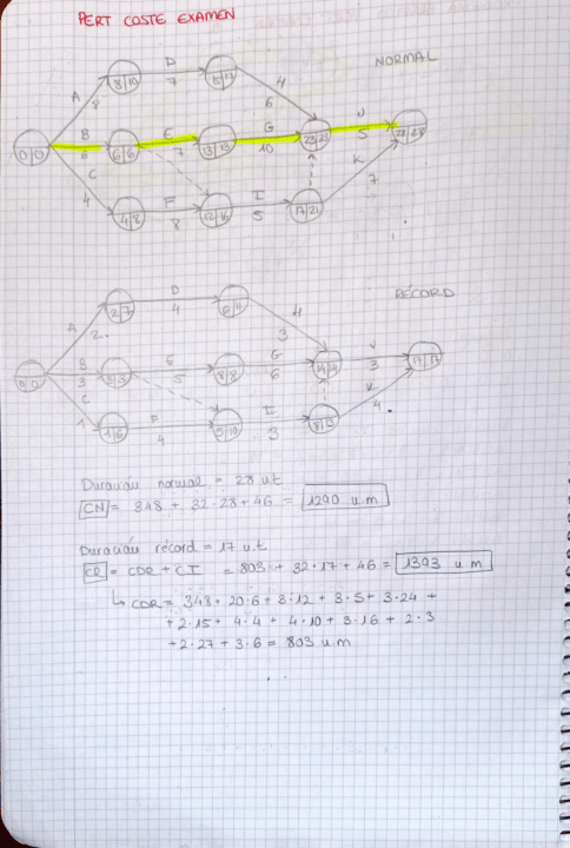 PERT COSTE EXAMEN
NORMAL
D
7
8|10
A
8
4
6
0|0
B
6
6|6
E
7
13|13
G
10
23|23
J
5
28|28
C
4
4|8
F
8
12|16
I
5
17|21
K
7
RÉCORD
D
4
2|7
6|11
A
2
H
3
0|0
B
3
3|3
5
8|8
G
6
14|14
J
3
17|17
C
1
1|6
F
4
5|10
I
3
K
4
Duración normal = 28 u.t
CN = 348 + 32·28 + 46 = 1290 u.m
Duración récord = 17 u.t
CR = CDR + CI = 803 + 32·17 + 46 = 1393 u.m
↳ CDR = 348 + 20·6 + 3·12 + 3·5 + 3·24 +
+ 2·15 + 4·4 + 4·10 + 3·16 + 2·3
+ 2·27 + 3·6 = 803 u.m